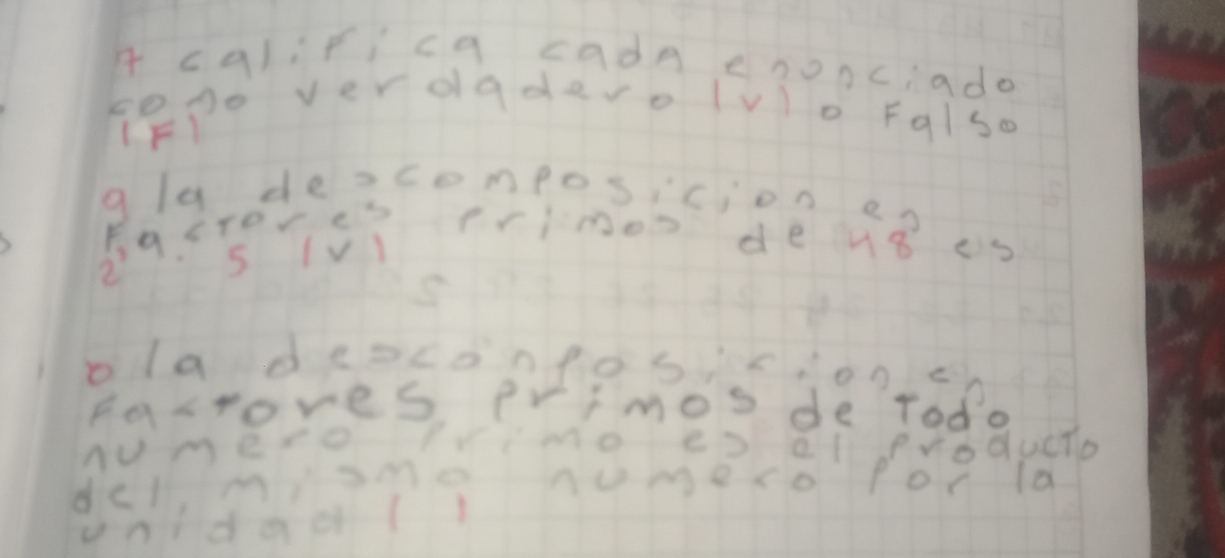 7 califica cada enunciado
como verdadero (v) o Falso
(F)
a la descomposicion en
Factores primos de 48 es
2 . 5 (v)
b la desconposicion en
Factores primos de todo
numero primo es el producto
del mismo numero por la
unidad ( )